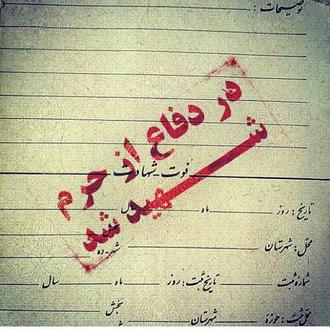 توضیحات :
در دفاع از حرم
شهید شد
فوت _ شهادت
تاریخ : روز ماه سال
محل : شهرستان شهر ده
شماره ثبت تاریخ ثبت : روز ماه سال
محل ثبت : حوزه شهرستان بخش